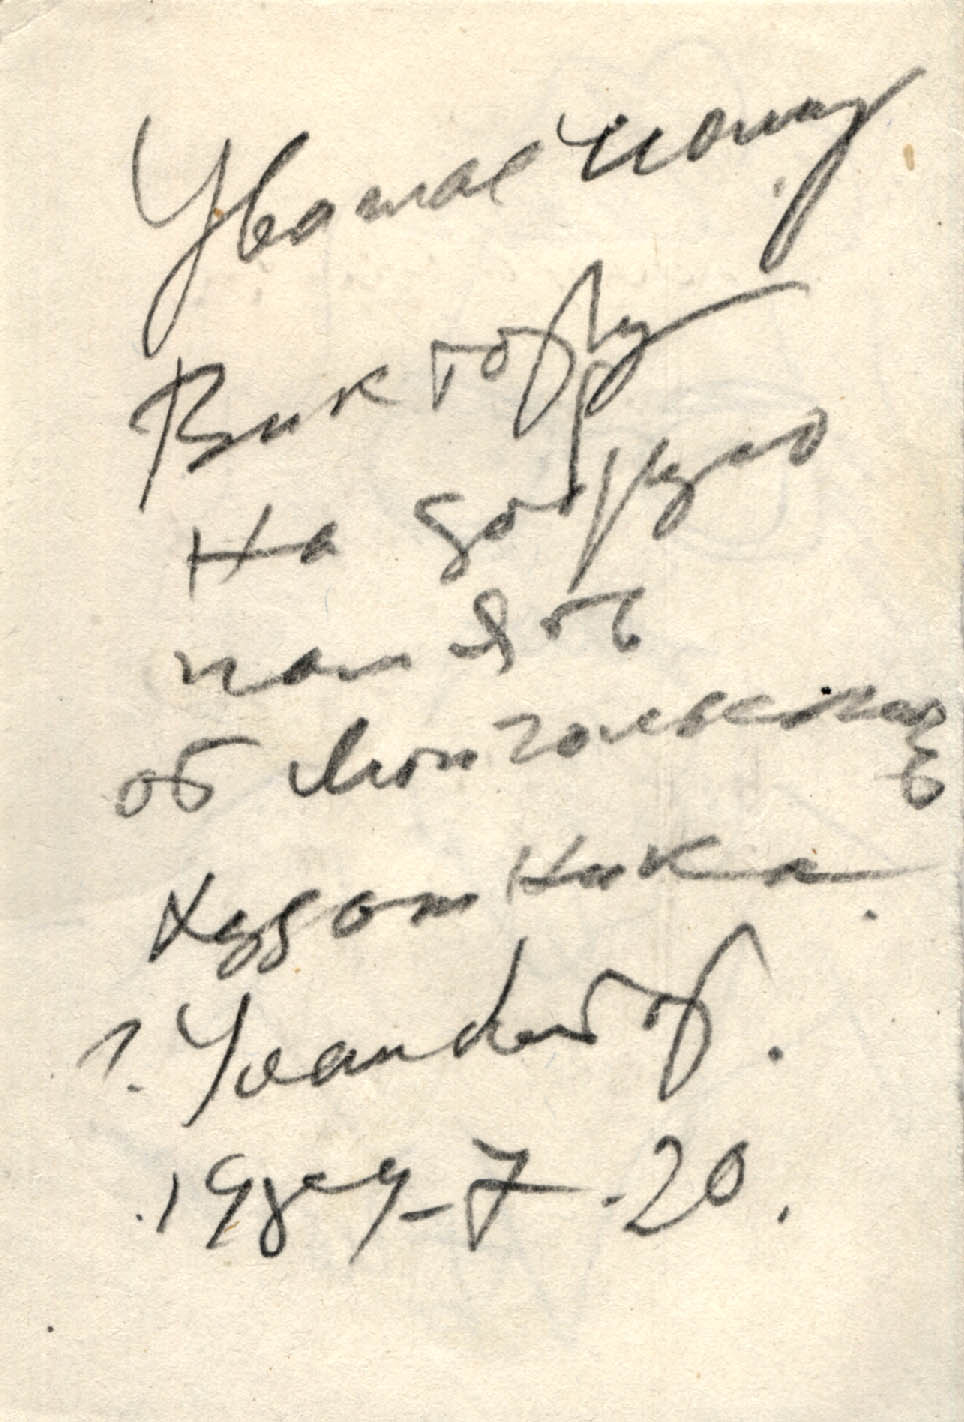 Уважаемому
Виктору
На добрую
память
об Монгольских
Художника.
г. Уланбатор.
1989-7-20.